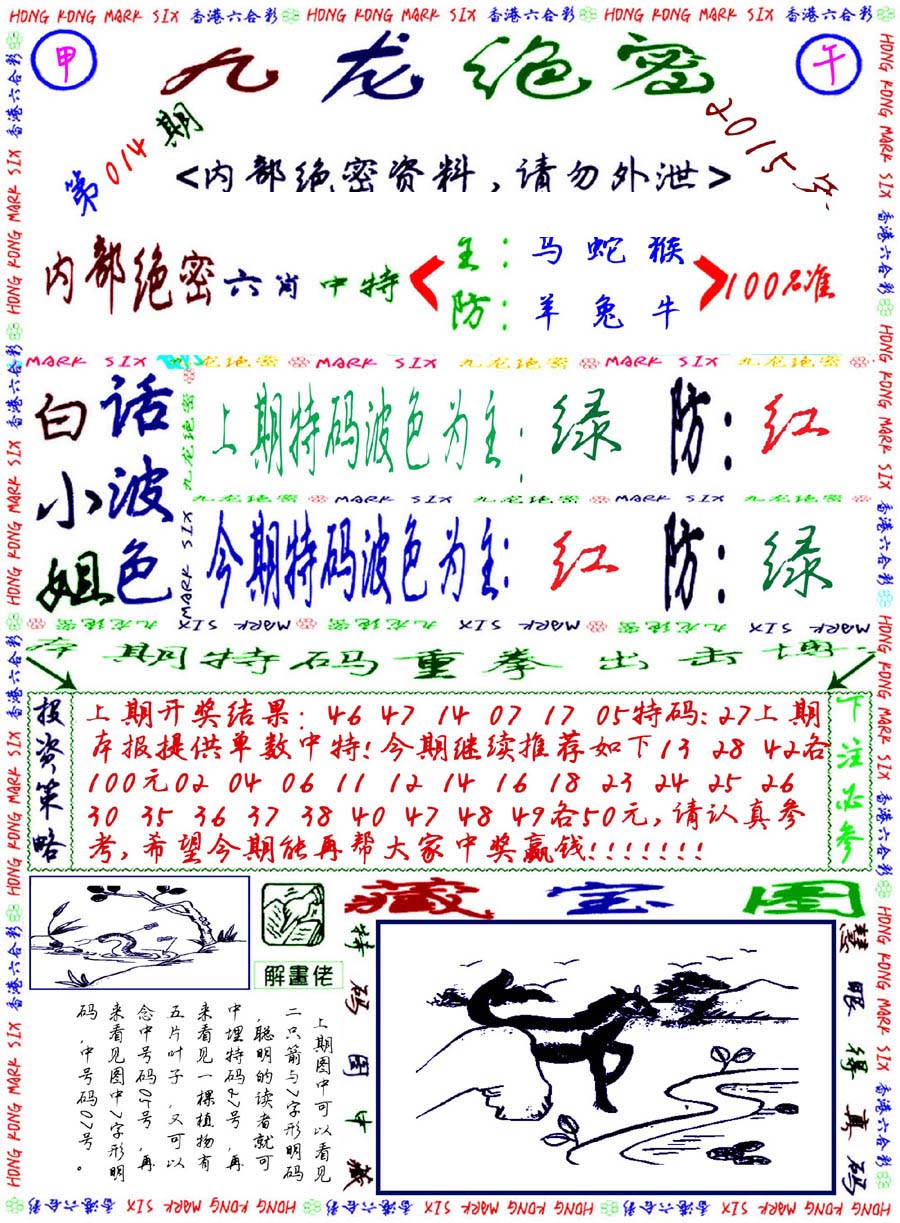 HONG KONG MARK SIX 香港六合彩 HONG KONG MARK SIX 香港六合彩 HONG KONG MARK SIX 香港六合彩
甲 九龙绝密 午
第014期
2015年
<内部绝密资料，请勿外泄>
内部绝密六肖中特
主：马 蛇 猴
防：羊 兔 牛
100%准
MARK SIX 九龙绝密 MARK SIX 九龙绝密 MARK SIX 九龙绝密
白话小波姐色
上期特码波色为主：绿 防：红
九龙绝密 MARK SIX 九龙绝密 MARK SIX 九龙绝密
今期特码波色为主：红 防：绿
本期特码重拳出击博
投资策略
上期开奖结果：46 47 14 07 17 05特码:27上期
本报提供单数中特!今期继续推荐如下13 28 42各
100元02 04 06 11 12 14 16 18 23 24 25 26
30 35 36 37 38 40 47 48 49各50元,请认真参
考,希望今期能再帮大家中奖赢钱!!!!!!!
下注必参
解畫佬
藏宝图
特码图中藏
慧眼得真码
上期图中可以看见
二只箭与7字形明码
，聪明的读者就可
中埋特码27号，再
来看见一棵植物有
五片叶子，又可以
念中号码05号，再
来看见图中7字形明
码，中号码07号。